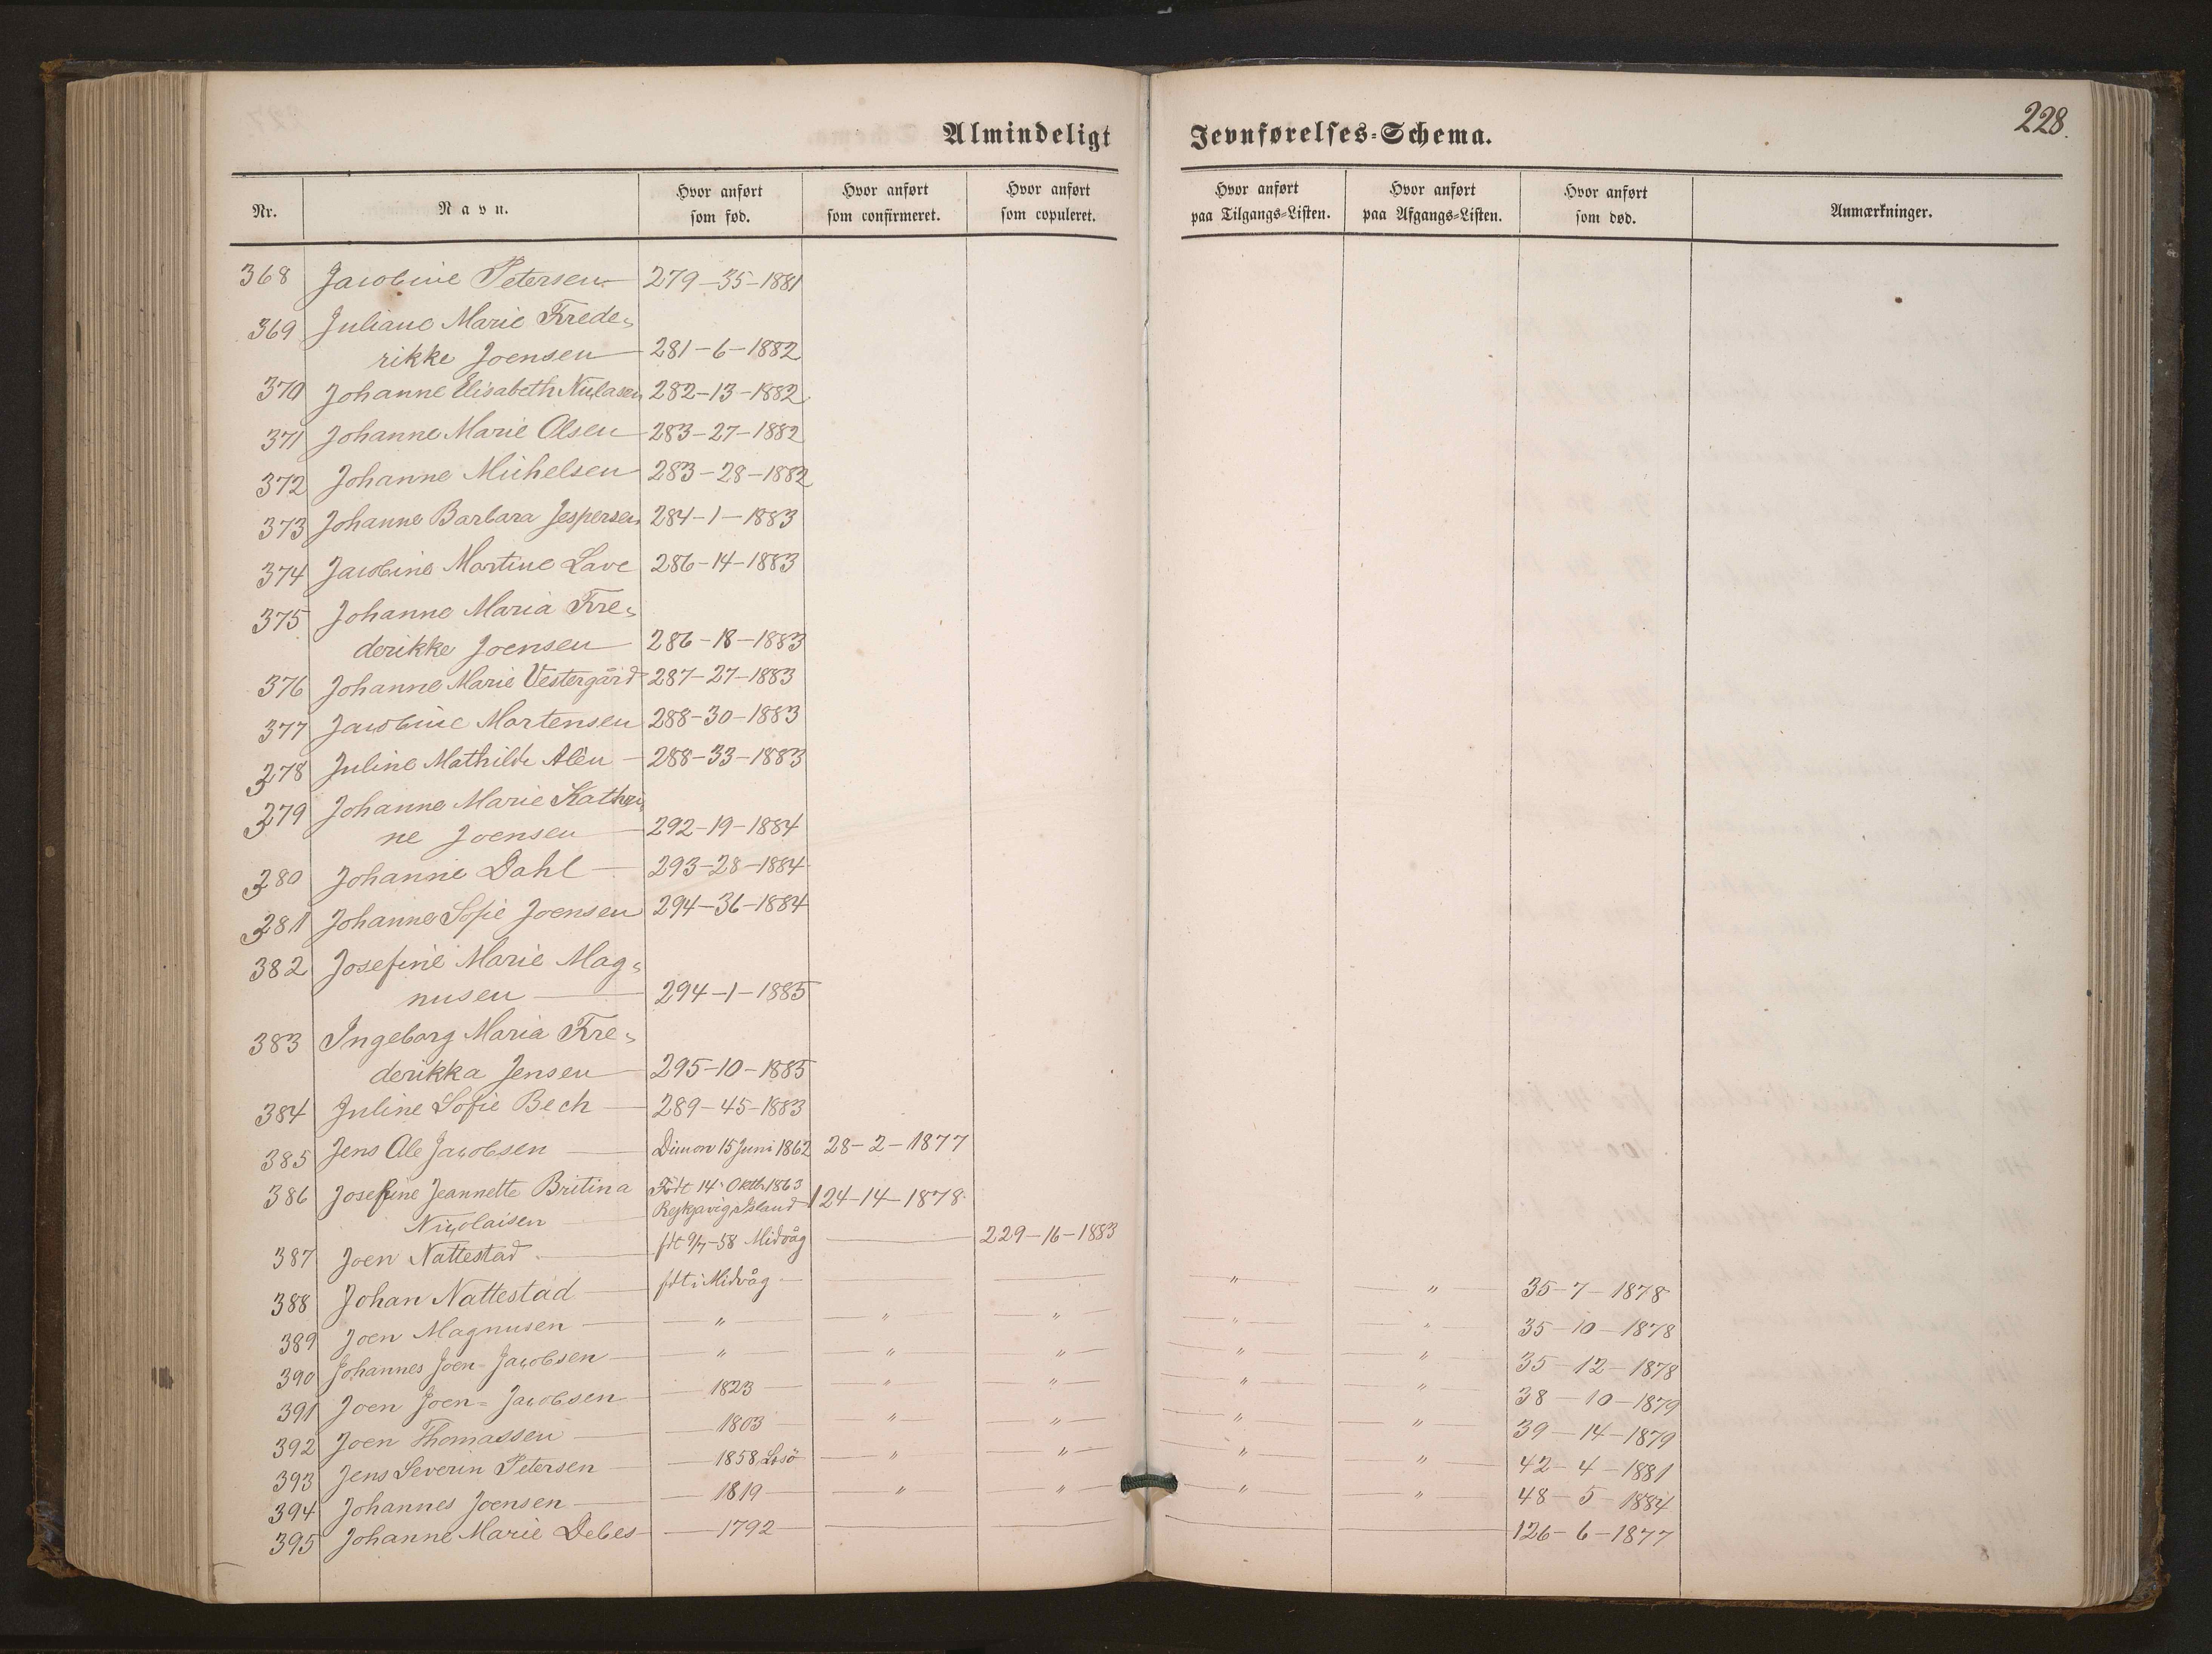 228.
Almindeligt Jevnførelses=Schema.
Nr. Navn. Hvor anført som fød. Hvor anført som confirmeret. Hvor anført som copuleret. Hvor anført paa Tilgangs=Listen. Hvor anført paa Afgangs=Listen. Hvor anført som død. Anmærkninger.
368 Jacobine Petersen 279-35-1881
369 Juliane Marie Frede=
rikke Joensen 281-6-1882
370 Johanne Elisabeth 282-13-1882
371 Johanne Marie Olsen 283-27-1882
372 Johanne Michelsen 283-28-1882
373 Johanne Barbara Jespersen 284-1-1883
374 Jacobine Martine Lave 286-14-1883
375 Johanne Maria Fre=
derikke Joensen 286-18-1883
376 Johanne Marie Vestergård 287-27-1883
377 Jacobine Mortensen 288-30-1883
378 Juline Mathilde 288-33-1883
379 Johanne Marie Kathri
ne Joensen 292-19-1884
380 Johanne Dahl 293-28-1884
381 Johanne Sofie Joensen 294-36-1884
382 Josefine Marie Mag=
nusen 294-1-1885
383 Ingeborg Maria Fre=
derikka Jensen 295-10-1885
384 Juline Sofie Bech 289-45-1883
385 Jens Ole Jacobsen Dimon 15 Juni 1862 28-2-1877
386 Josefine Jeannette Britina Födt 14 Oktb. 1863
Nicolaisen Reykjavig, Island 124-14-1878.
387 Joen Nattestad fdt 9/7-58 Midvåg 229-16-1883
388 Johan Nattestad fdt i Midvåg " " 35-7-1878
389 Joen Magnusen " " " " " 35-10-1878
390 Johannes Joen=Jacobsen " " " " " 35-12-1878
391 Joen Joen=Jacobsen 1823 " " " " 38-10-1879
392 Joen Thomassen 1803 " " " " 39-14-1879
393 Jens Severin Petersen 1858, " " " " 42-4-1881
394 Johannes Joensen 1819 " " " " 48-5-1884
395 Johanne Marie Debes 1792 126-6-1877